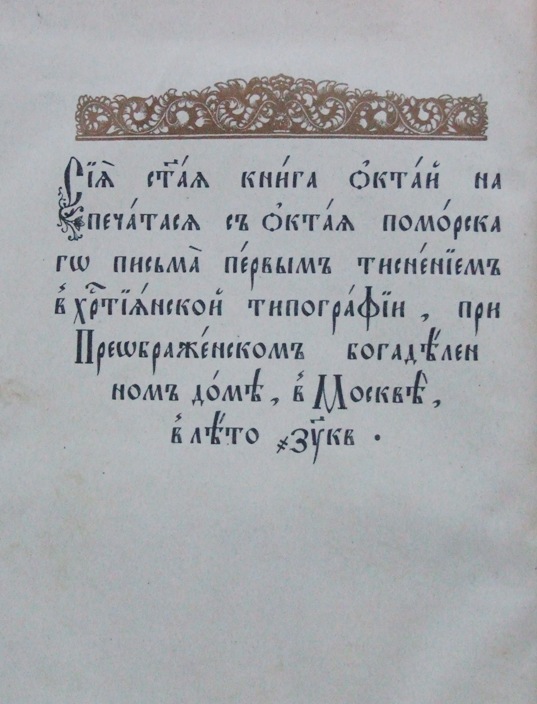 Сїѧ̀ ст҃а́ѧ кни́га Ѻ҆кта́й на
печа́тасѧ съ Ѻ҆кта́ѧ помо́рска
гѡ письма̀ пе́рвымъ тисне́нїемъ
в҆ хр҇тїѧ́нской типогра́фїи , при
Преѡбраже́нскомъ богадѣ́лен
номъ до́мѣ , в҆ Москвѣ̀ ,
в҆ лѣ́то ҂зу҃кв .